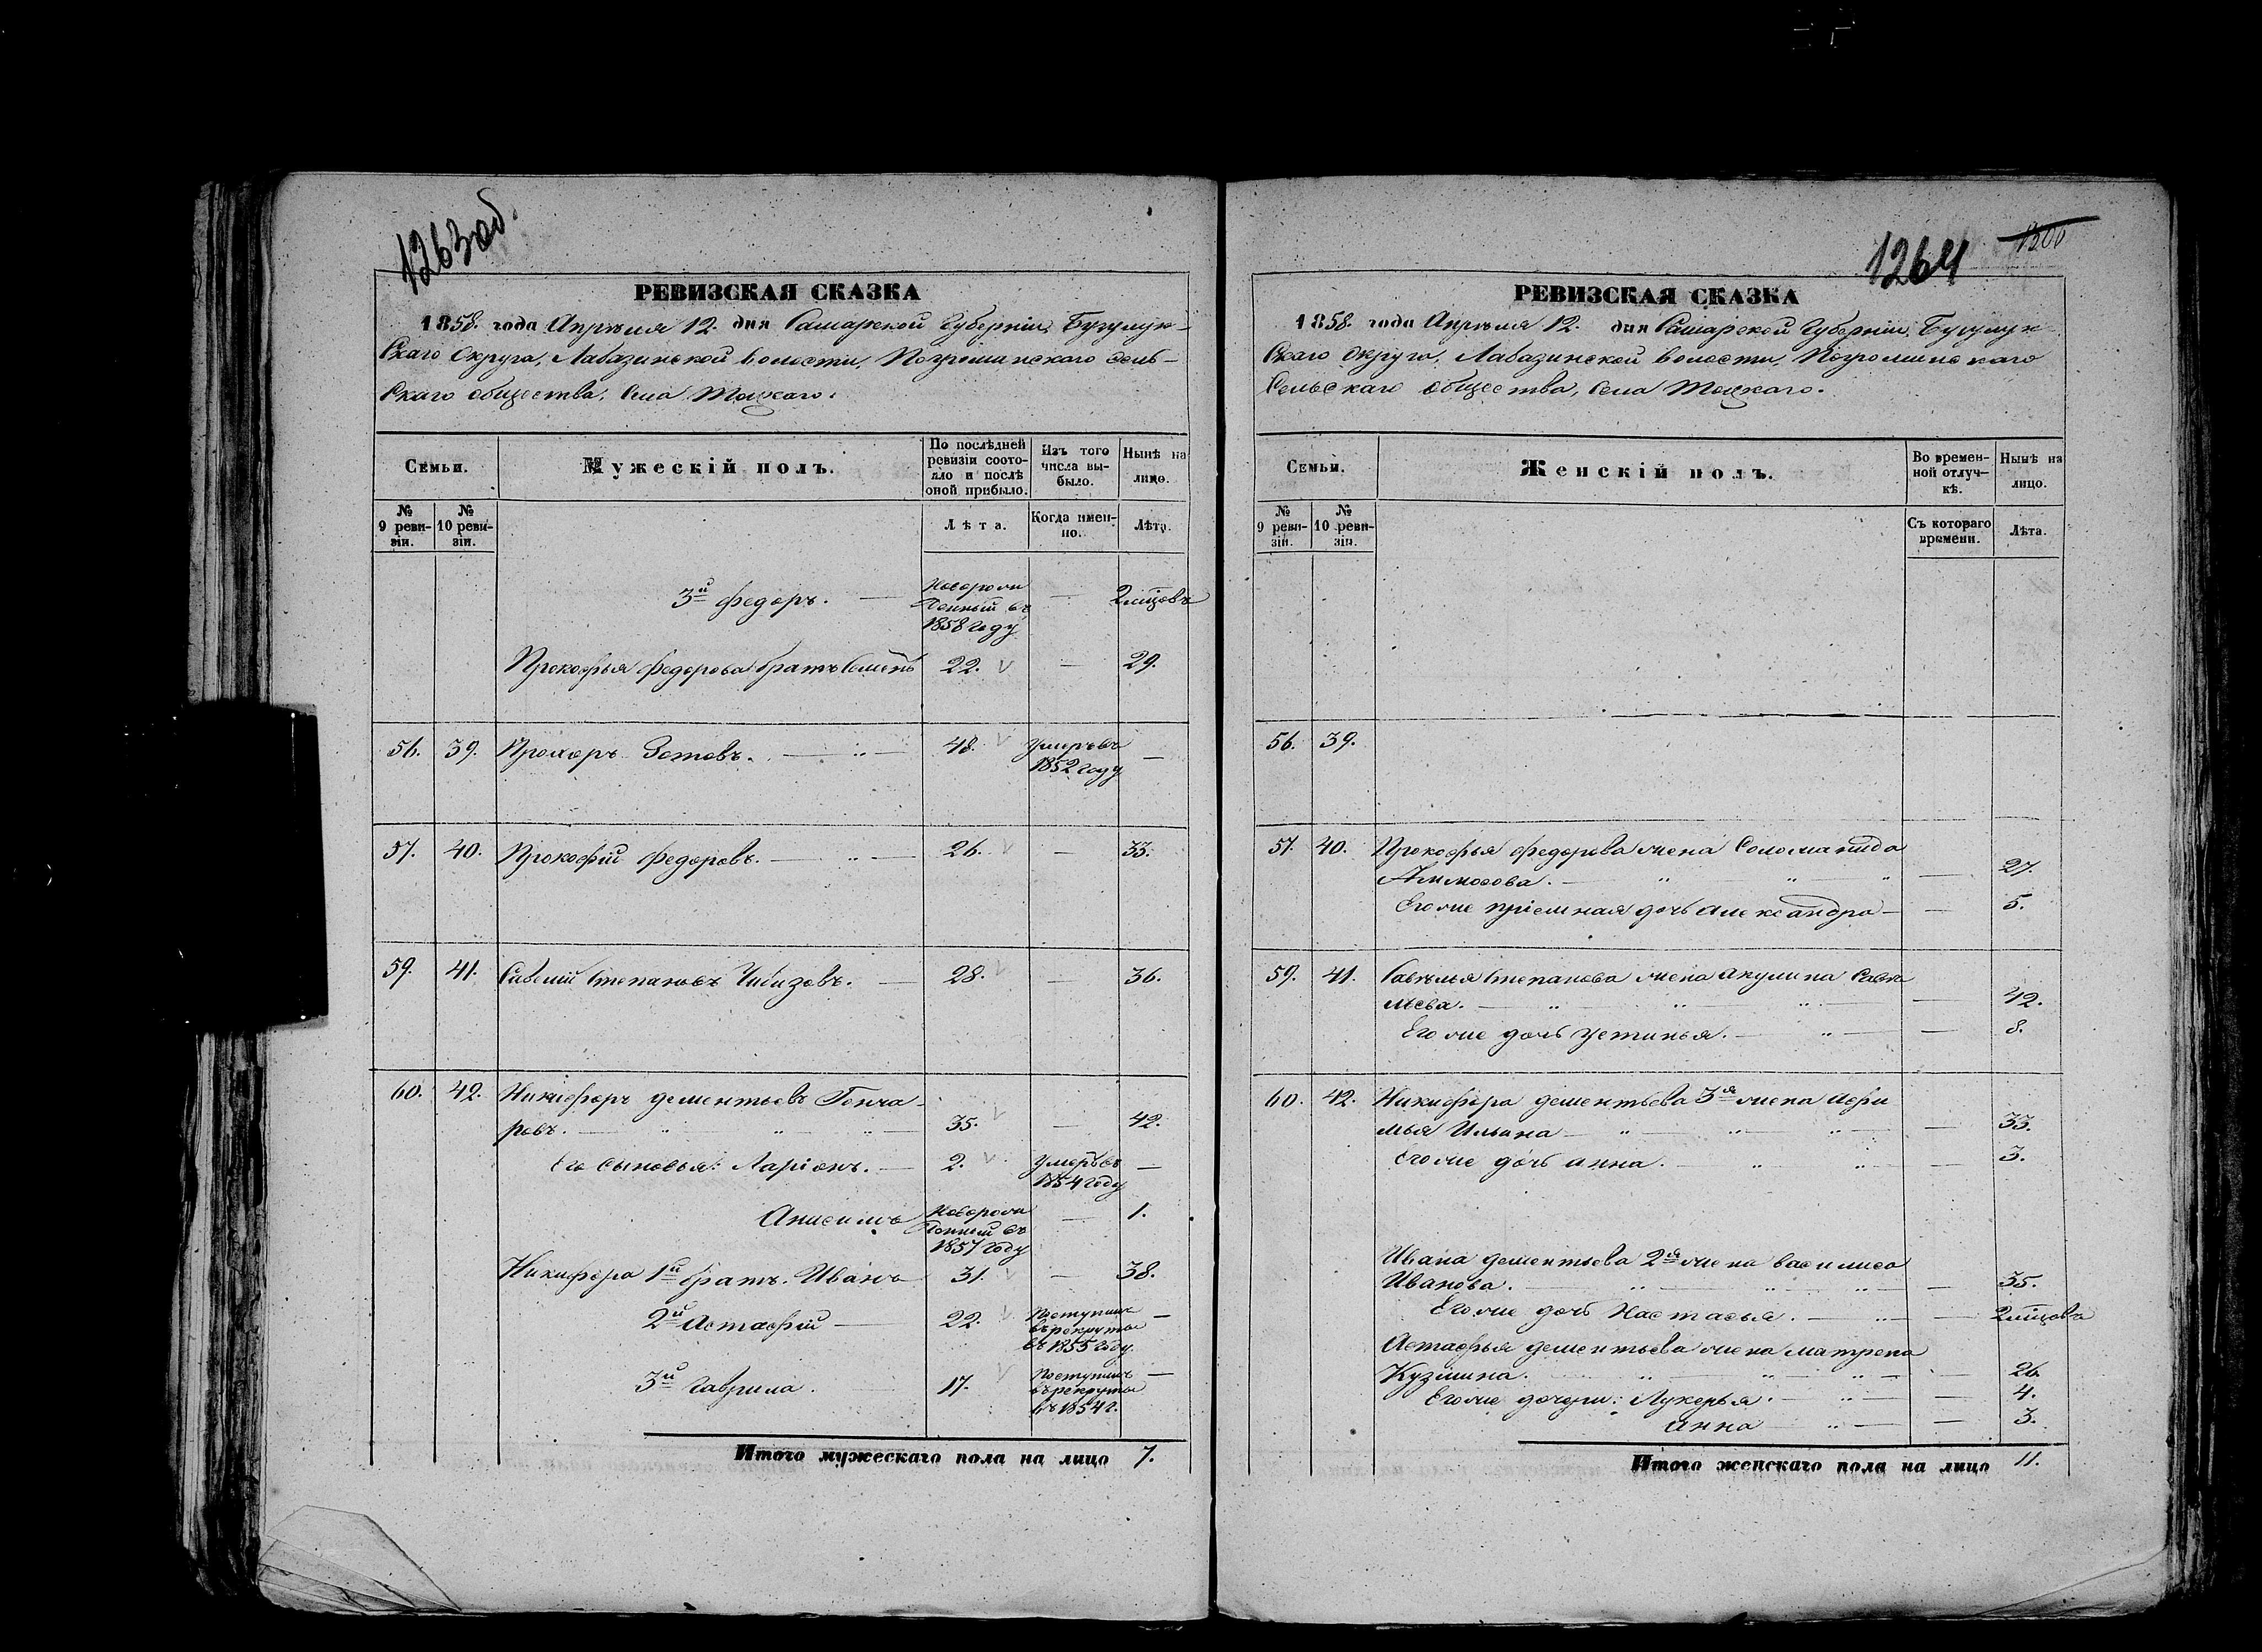 1263об.
РЕВИЗСКАЯ СКАЗКА
1858. года Апрѣля 12. дня Самарской Губерніи, Бузулук-
скаго Округа, Лабазинской волости, Погроминскаго Сель-
скаго общества, Села Тоцкаго.
Семьи.
Мужескій полъ.
По послѣдней ревизіи состояло и послѣ оной прибыло.
Изъ того числа выбыло.
Нынѣ на лицо.
№ 9 ревизіи.
№ 10 ревизіи.
Лѣта.
Когда именно.
Лѣта.
3й Федоръ. — Новорожденный въ 1858 году — 2 мѣсцовъ
Прокофья Федорова братъ Семенъ 22. — 29.
56. 39. Прохоръ Зотовъ. — 48. Умеръ въ 1852 году —
57. 40. Прокофій Федоровъ. — 26. — 33.
59. 41. Савелій Степановъ Чибизовъ. — 28. — 36.
60. 42. Никифоръ Дементьевъ Гонча-
ровъ. — 35. — 42.
Его сыновья: Ларіонъ. — 2. Умеръ въ 1854 году —
Анисимъ Новорожденный въ 1857 году — 1.
Никифора 1й братъ. Иванъ 31. — 38.
2й Астафій — 22. Поступилъ въ рекруты въ 1855 году. —
3й Гаврила. 17. Поступилъ въ рекруты въ 1854 г. —
Итого мужескаго пола на лицо 7.
1264 1200
РЕВИЗСКАЯ СКАЗКА
1858. года Апрѣля 12. дня Самарской Губерніи, Бузулук-
скаго Округа, Лабазинской волости, Погроминскаго
Сельскаго общества, Села Тоцкаго.
Семьи.
Женскій полъ.
Во временной отлучкѣ.
Нынѣ на лицо.
№ 9 ревизіи.
№ 10 ревизіи.
Съ котораго времени.
Лѣта.
56. 39.
57. 40. Прокофья Федорова жена Соломанида
— 27.
Его же пріемная дочь Александра — — 5.
59. 41. Савелья Степанова жена Акулина Савѣ
льева. — 42.
Его же дочь Устинья. — 8.
60. 42. Никифора Дементьева 3я жена Афи
мья Ильина — 33.
Его же дочь Анна. — 3.
Ивана Дементьева 2я жена Василиса
Иванова. — 35.
Его же дочь Настасья. — 2 мѣсцовъ
Астафья Дементьева жена Матрена
Кузмина. — 26.
Его же дочери: Лукерья. — 4.
Анна — 3.
Итого женскаго пола на лицо 11.